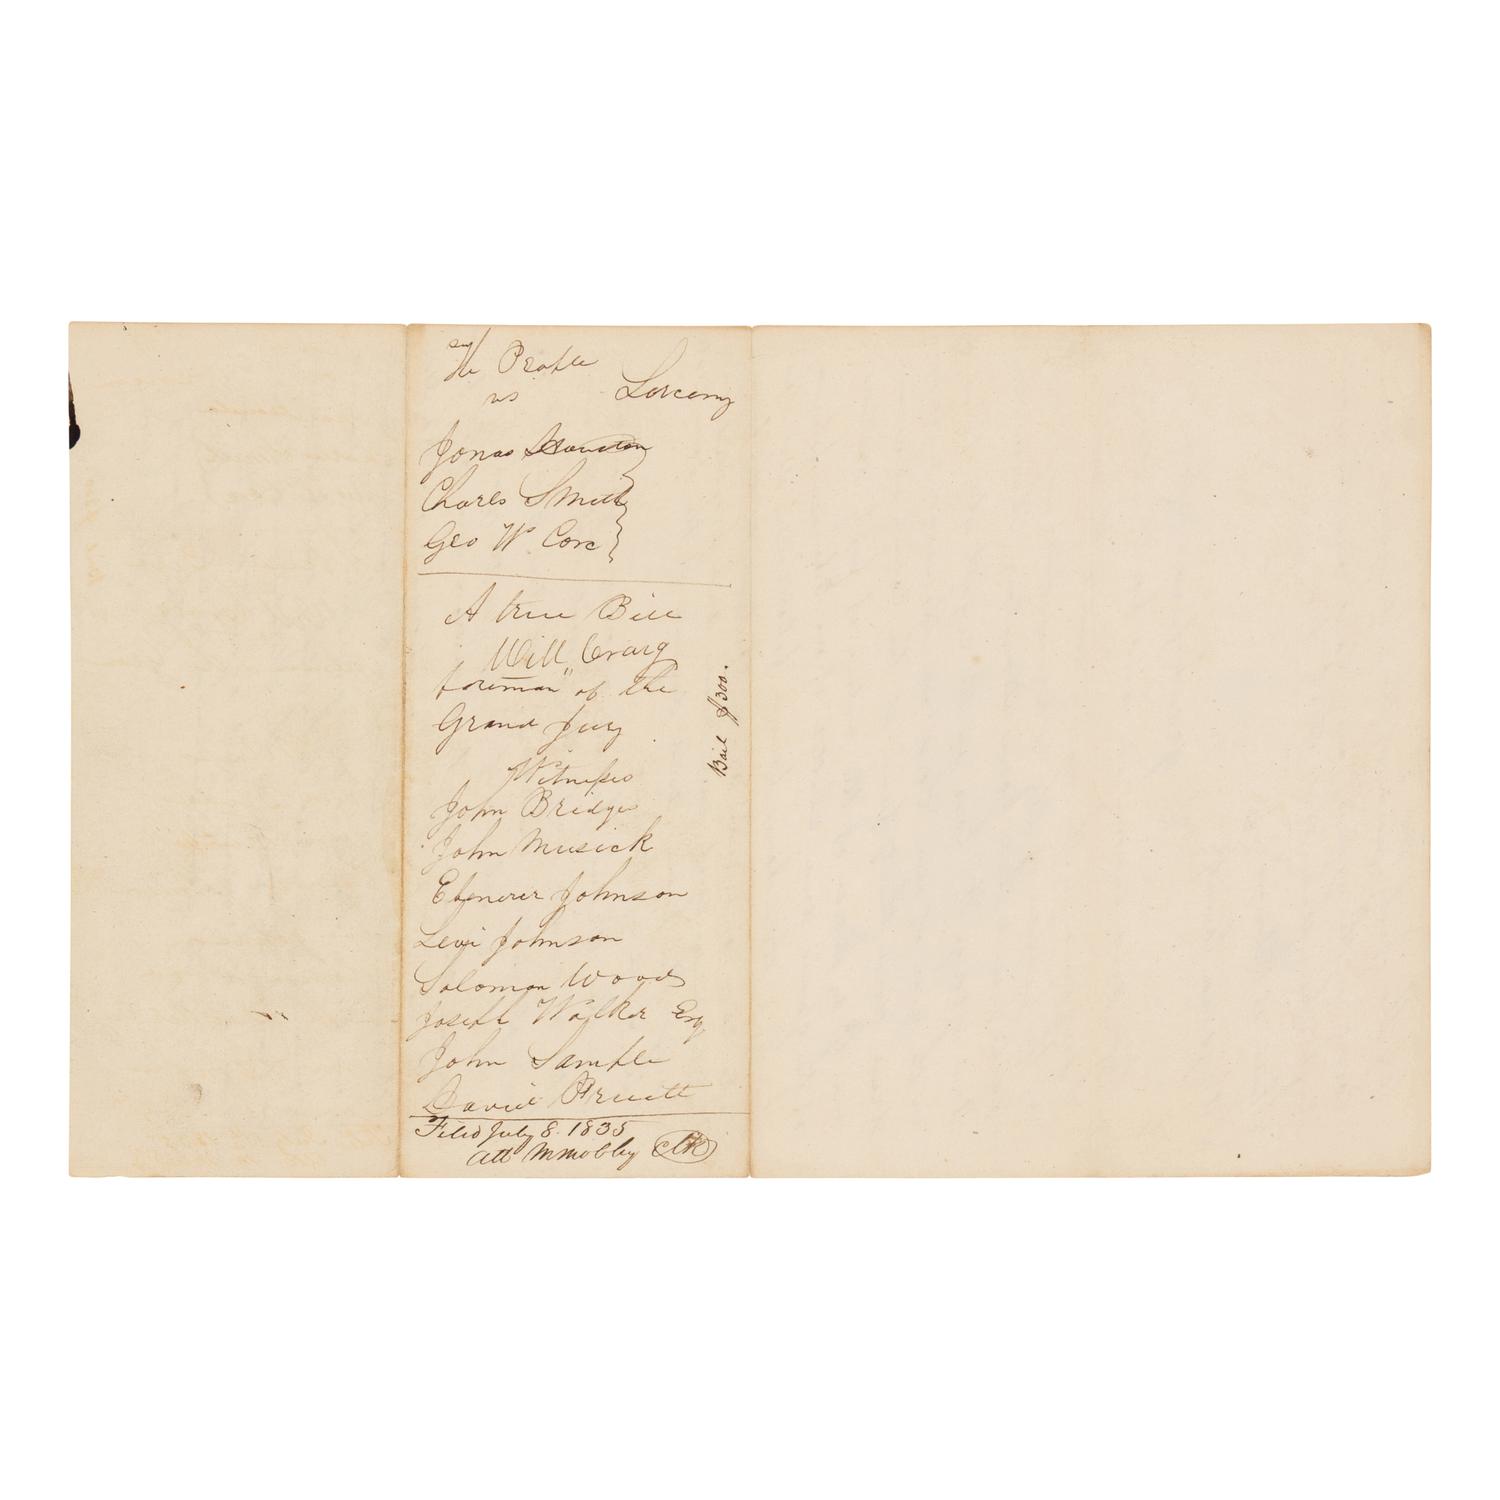 The People
vs Larceny
Jonas
Charls Smith
Geo W. Core
A true Bill
Will Craig
foreman of the
Grand Jury
Witnesses
John Bridges
John Musick
Ebenezer Johnson
Levi Johnson
Solomon Woods
Joseph Walker Esq
John Sample
David Pruitt
Filed July 8. 1835
Att M Mobley Clk
Bail $300.